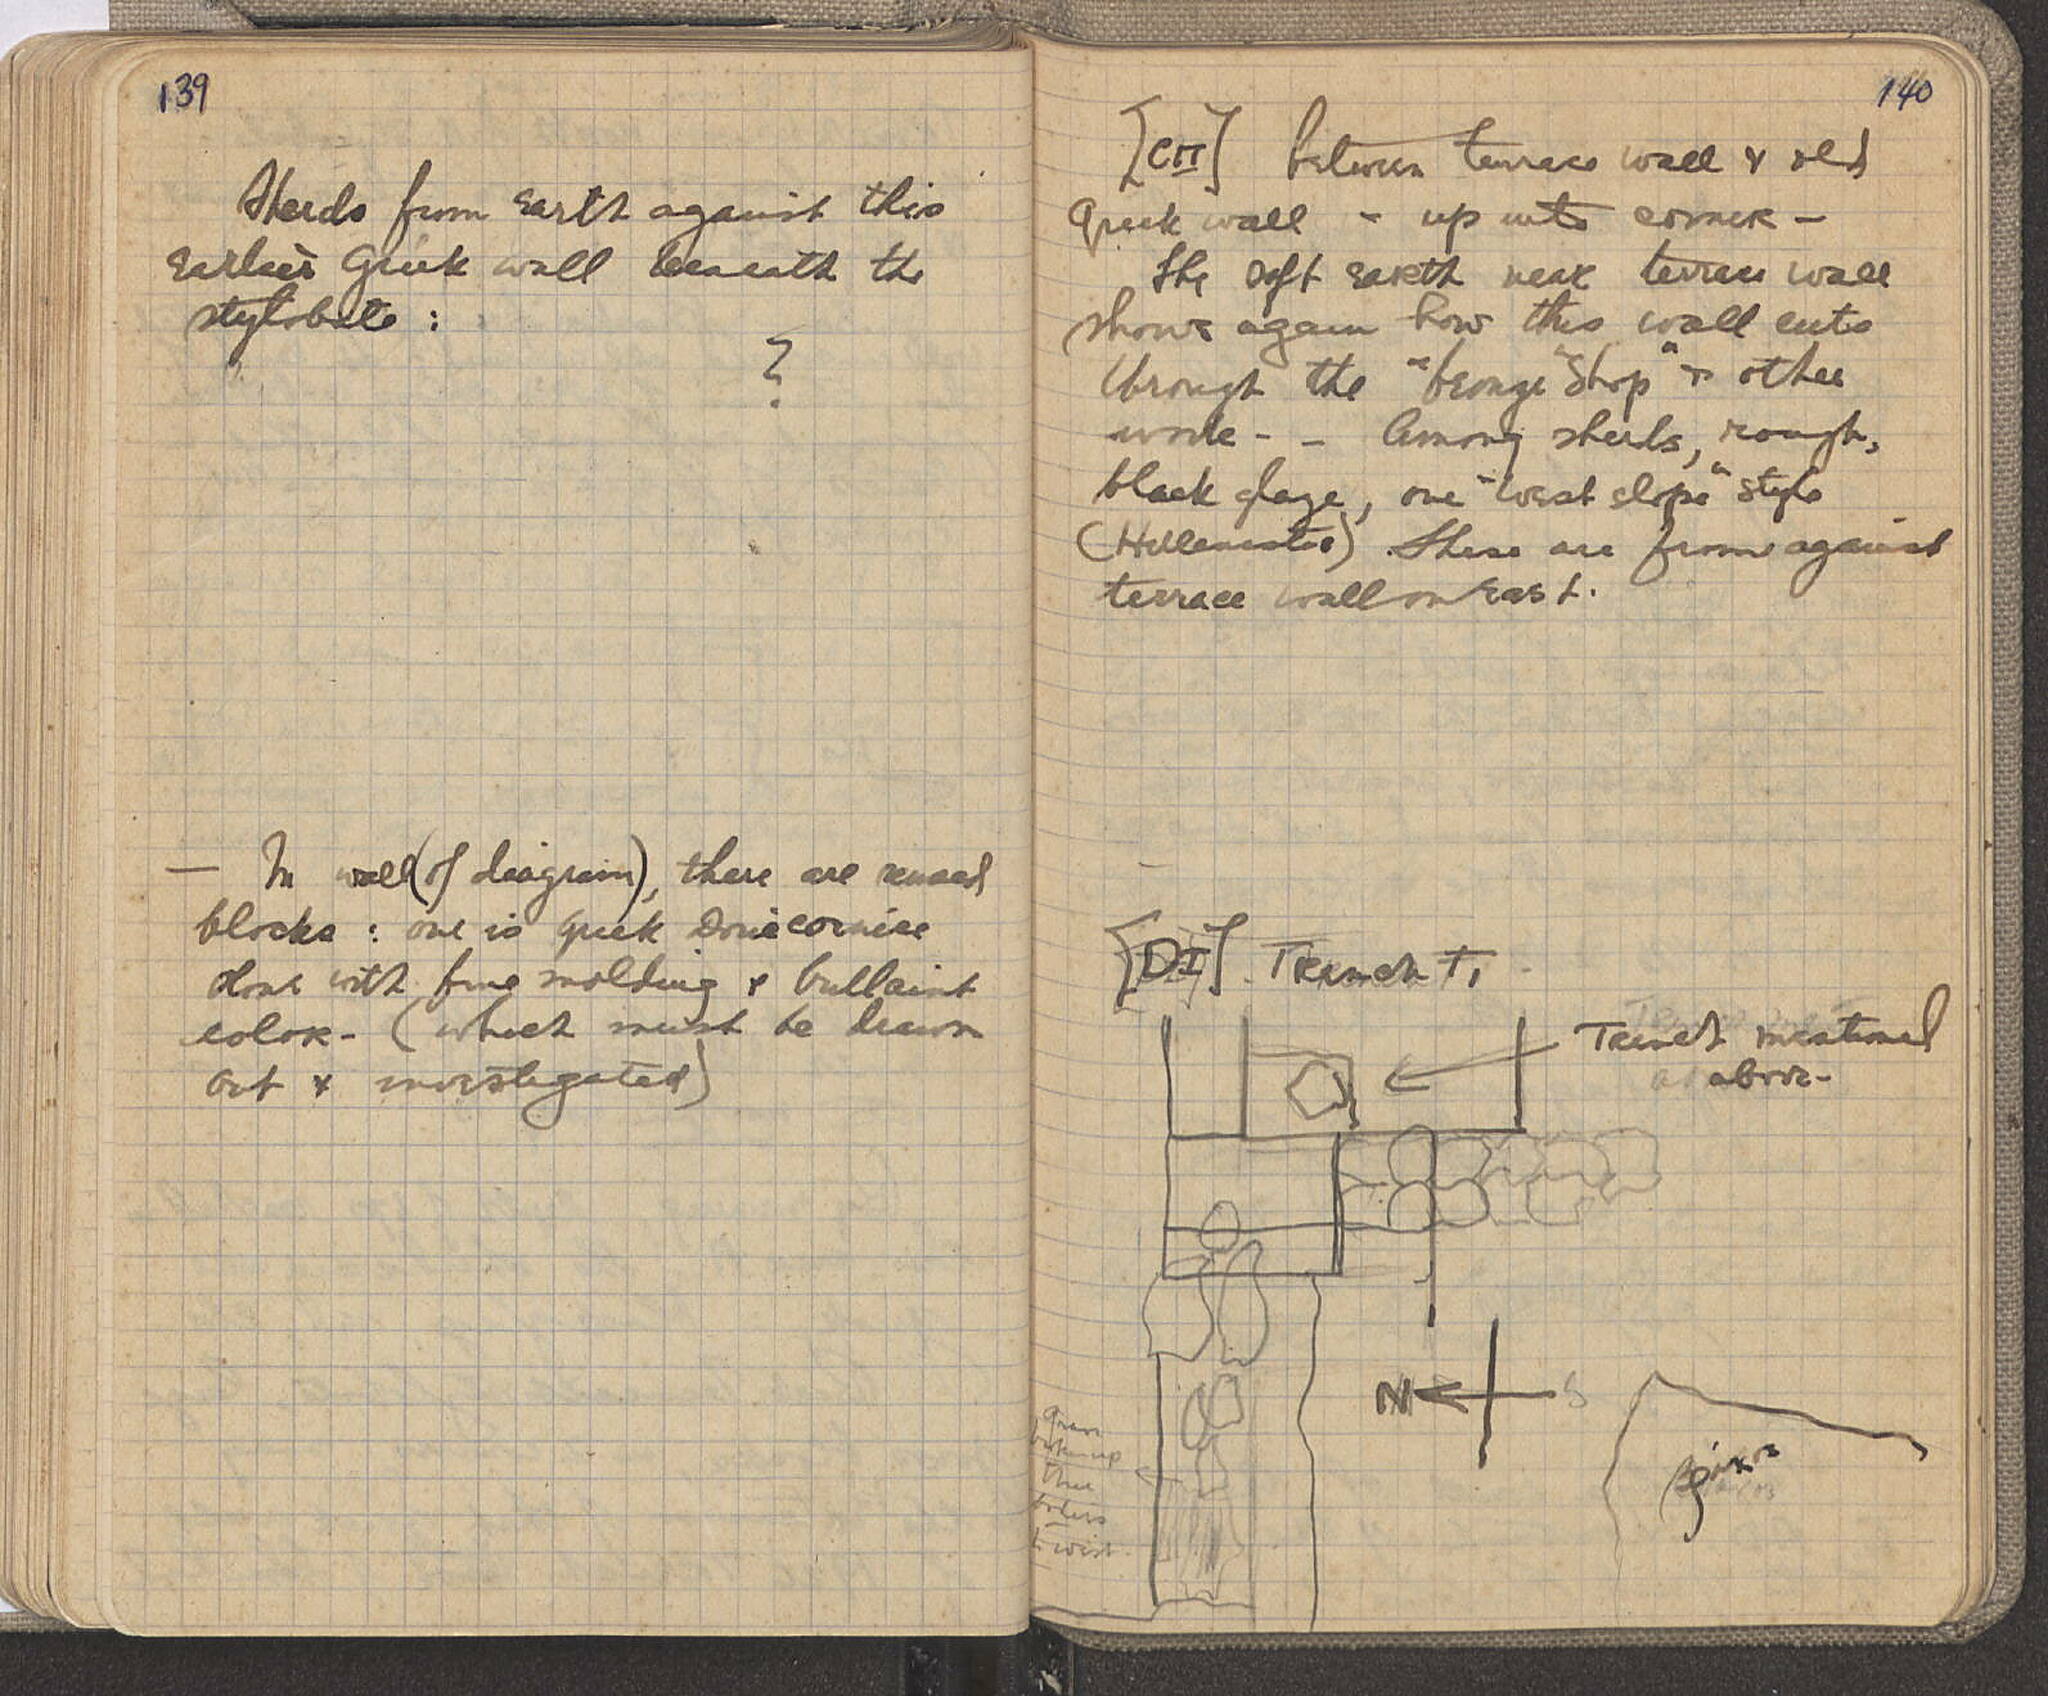 139
Sherds from earth against this
earlier Greek wall beneath the
stylobate :
?
— In wall (of diagram), there are reused
blocks : one is Greek Doric cornice
stone with fine molding & brilliant
color - (which must be drawn
out & investigated)
140
[CII] between terrace wall & old
Greek wall - up into corner -
The soft earth near terrace wall
shows again how this wall cuts
through the "bronze shop" & other
work - - Among sherds, rough,
black glaze, one "west slope" style
(Hellenistic) These are from against
terrace wall on east.
[DI]. Trench T1
Trench mentioned
above -
N S
three
to west